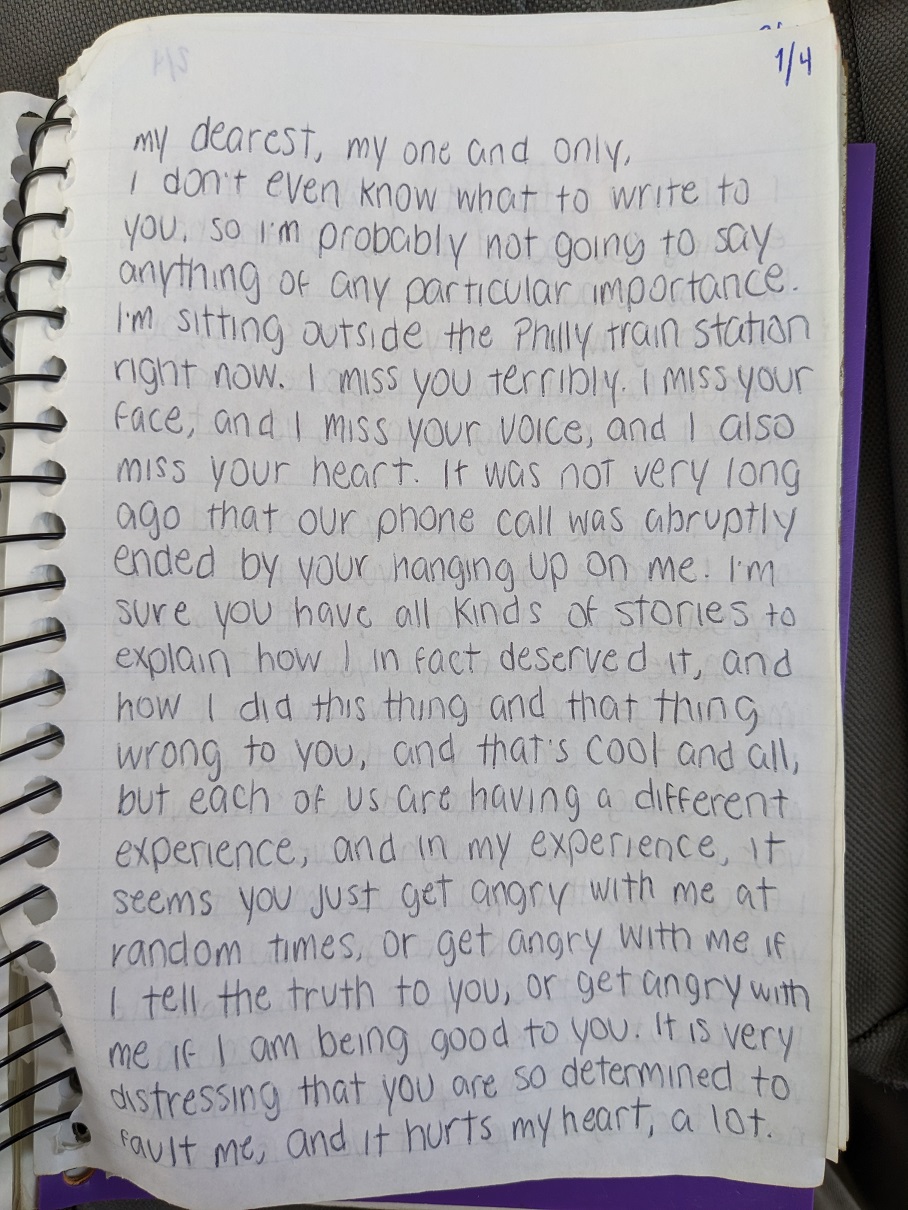 1/4
my dearest, my one and only,
I don't even know what to write to
you, so I'm probably not going to say
anything of any particular importance.
I'm sitting outside the Philly train station
right now. I miss you terribly. I miss your
face, and I miss your voice, and I also
miss your heart. It was not very long
ago that our phone call was abruptly
ended by your hanging up on me. I'm
sure you have all kinds of stories to
explain how I in fact deserved it, and
how I did this thing and that thing
wrong to you, and that's cool and all,
but each of us are having a different
experience, and in my experience, it
seems you just get angry with me at
random times, or get angry with me if
I tell the truth to you, or get angry with
me if I am being good to you. It is very
distressing that you are so determined to
fault me, and it hurts my heart, a lot.